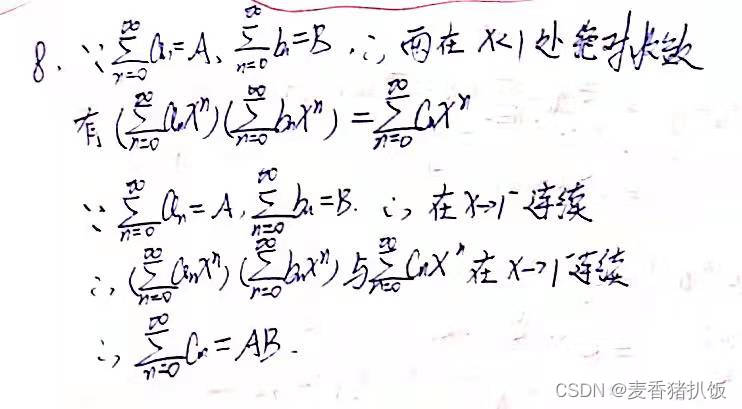 8. ∵ ∑_{n=0}^{∞} aₙ = A, ∑_{n=0}^{∞} bₙ = B. ∴ 两在 x<1 处绝对收敛
有 (∑_{n=0}^{∞} aₙxⁿ)(∑_{n=0}^{∞} bₙxⁿ) = ∑_{n=0}^{∞} Cₙxⁿ
∵ ∑_{n=0}^{∞} aₙ = A, ∑_{n=0}^{∞} bₙ = B. ∴ 在 x→1⁻ 连续
∴ (∑_{n=0}^{∞} aₙxⁿ)(∑_{n=0}^{∞} bₙxⁿ) 与 ∑_{n=0}^{∞} Cₙxⁿ 在 x→1⁻ 连续
∴ ∑_{n=0}^{∞} Cₙ = AB.
CSDN @麦香猪扒饭